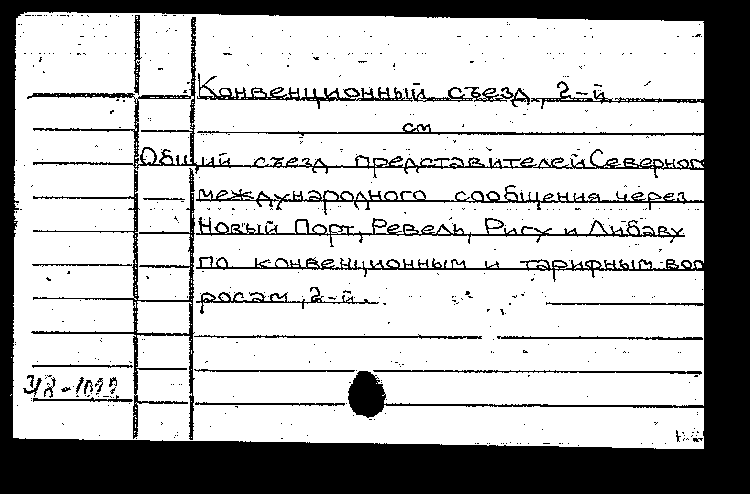 Конвенционный съезд, 2-й
см
Общий съезд представителей Северног
международного сообщения через
Новый Порт, Ревель, Ригу и Либаву
по конвенционным и тарифным воп
росам, 2-й.